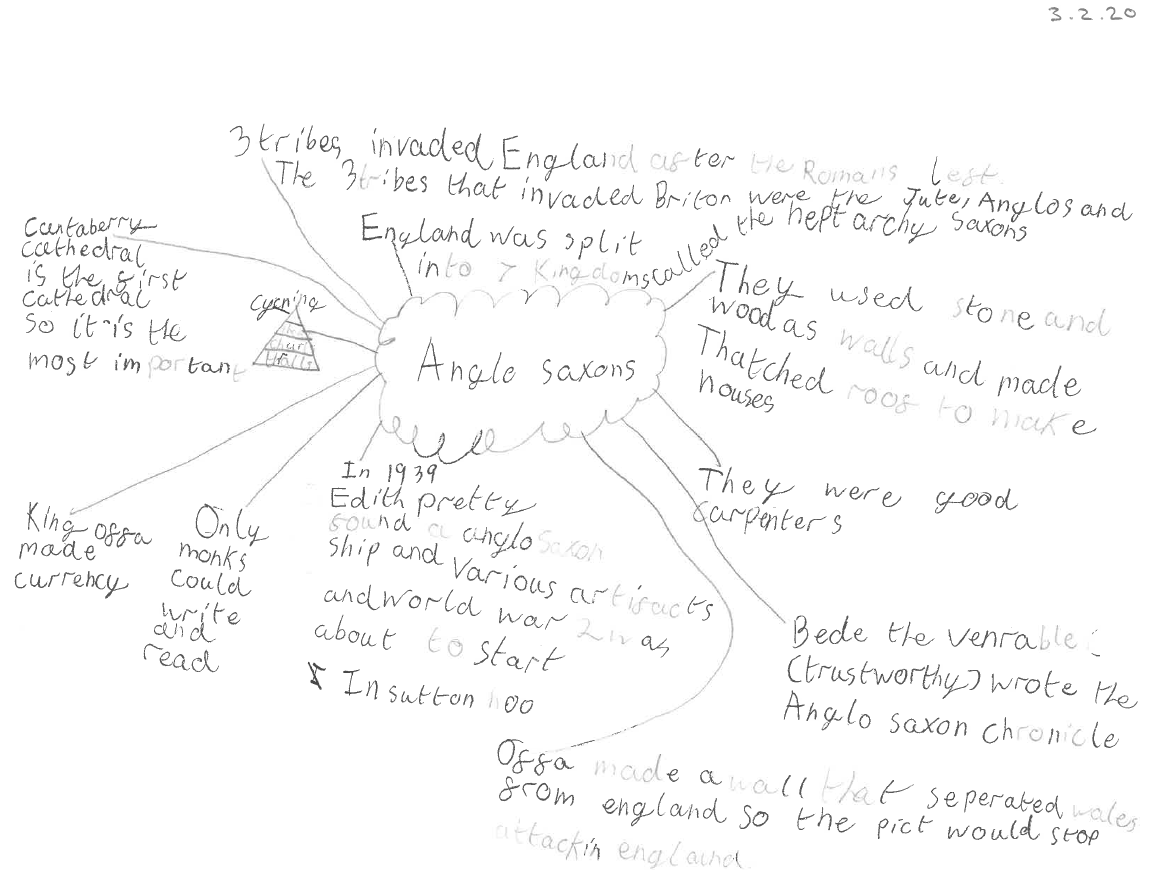 3.2.20
3 tribes invaded England after the Romans left.
The 3 tribes that invaded Briton were the Jute, Anglos and
saxons
England was split
into 7 Kingdoms called the heptarchy
Cantaberry
cathedral
is the first
cathedral
so it is the
most important
cyening
Anglo saxons
They used stone and
wood as walls and made
Thatched roof to make
houses
They were good
carpenters
King offa
made
currency
Only
monks
could
write
and
read
In 1939
Edith pretty
found a anglo saxon
ship and various artifacts
and world war 2 was
about to start
In sutton hoo
Bede the venrable
(trustworthy) wrote the
Anglo saxon chronicle
Offa made a wall that seperated wales
from england so the pict would stop
attackin england.